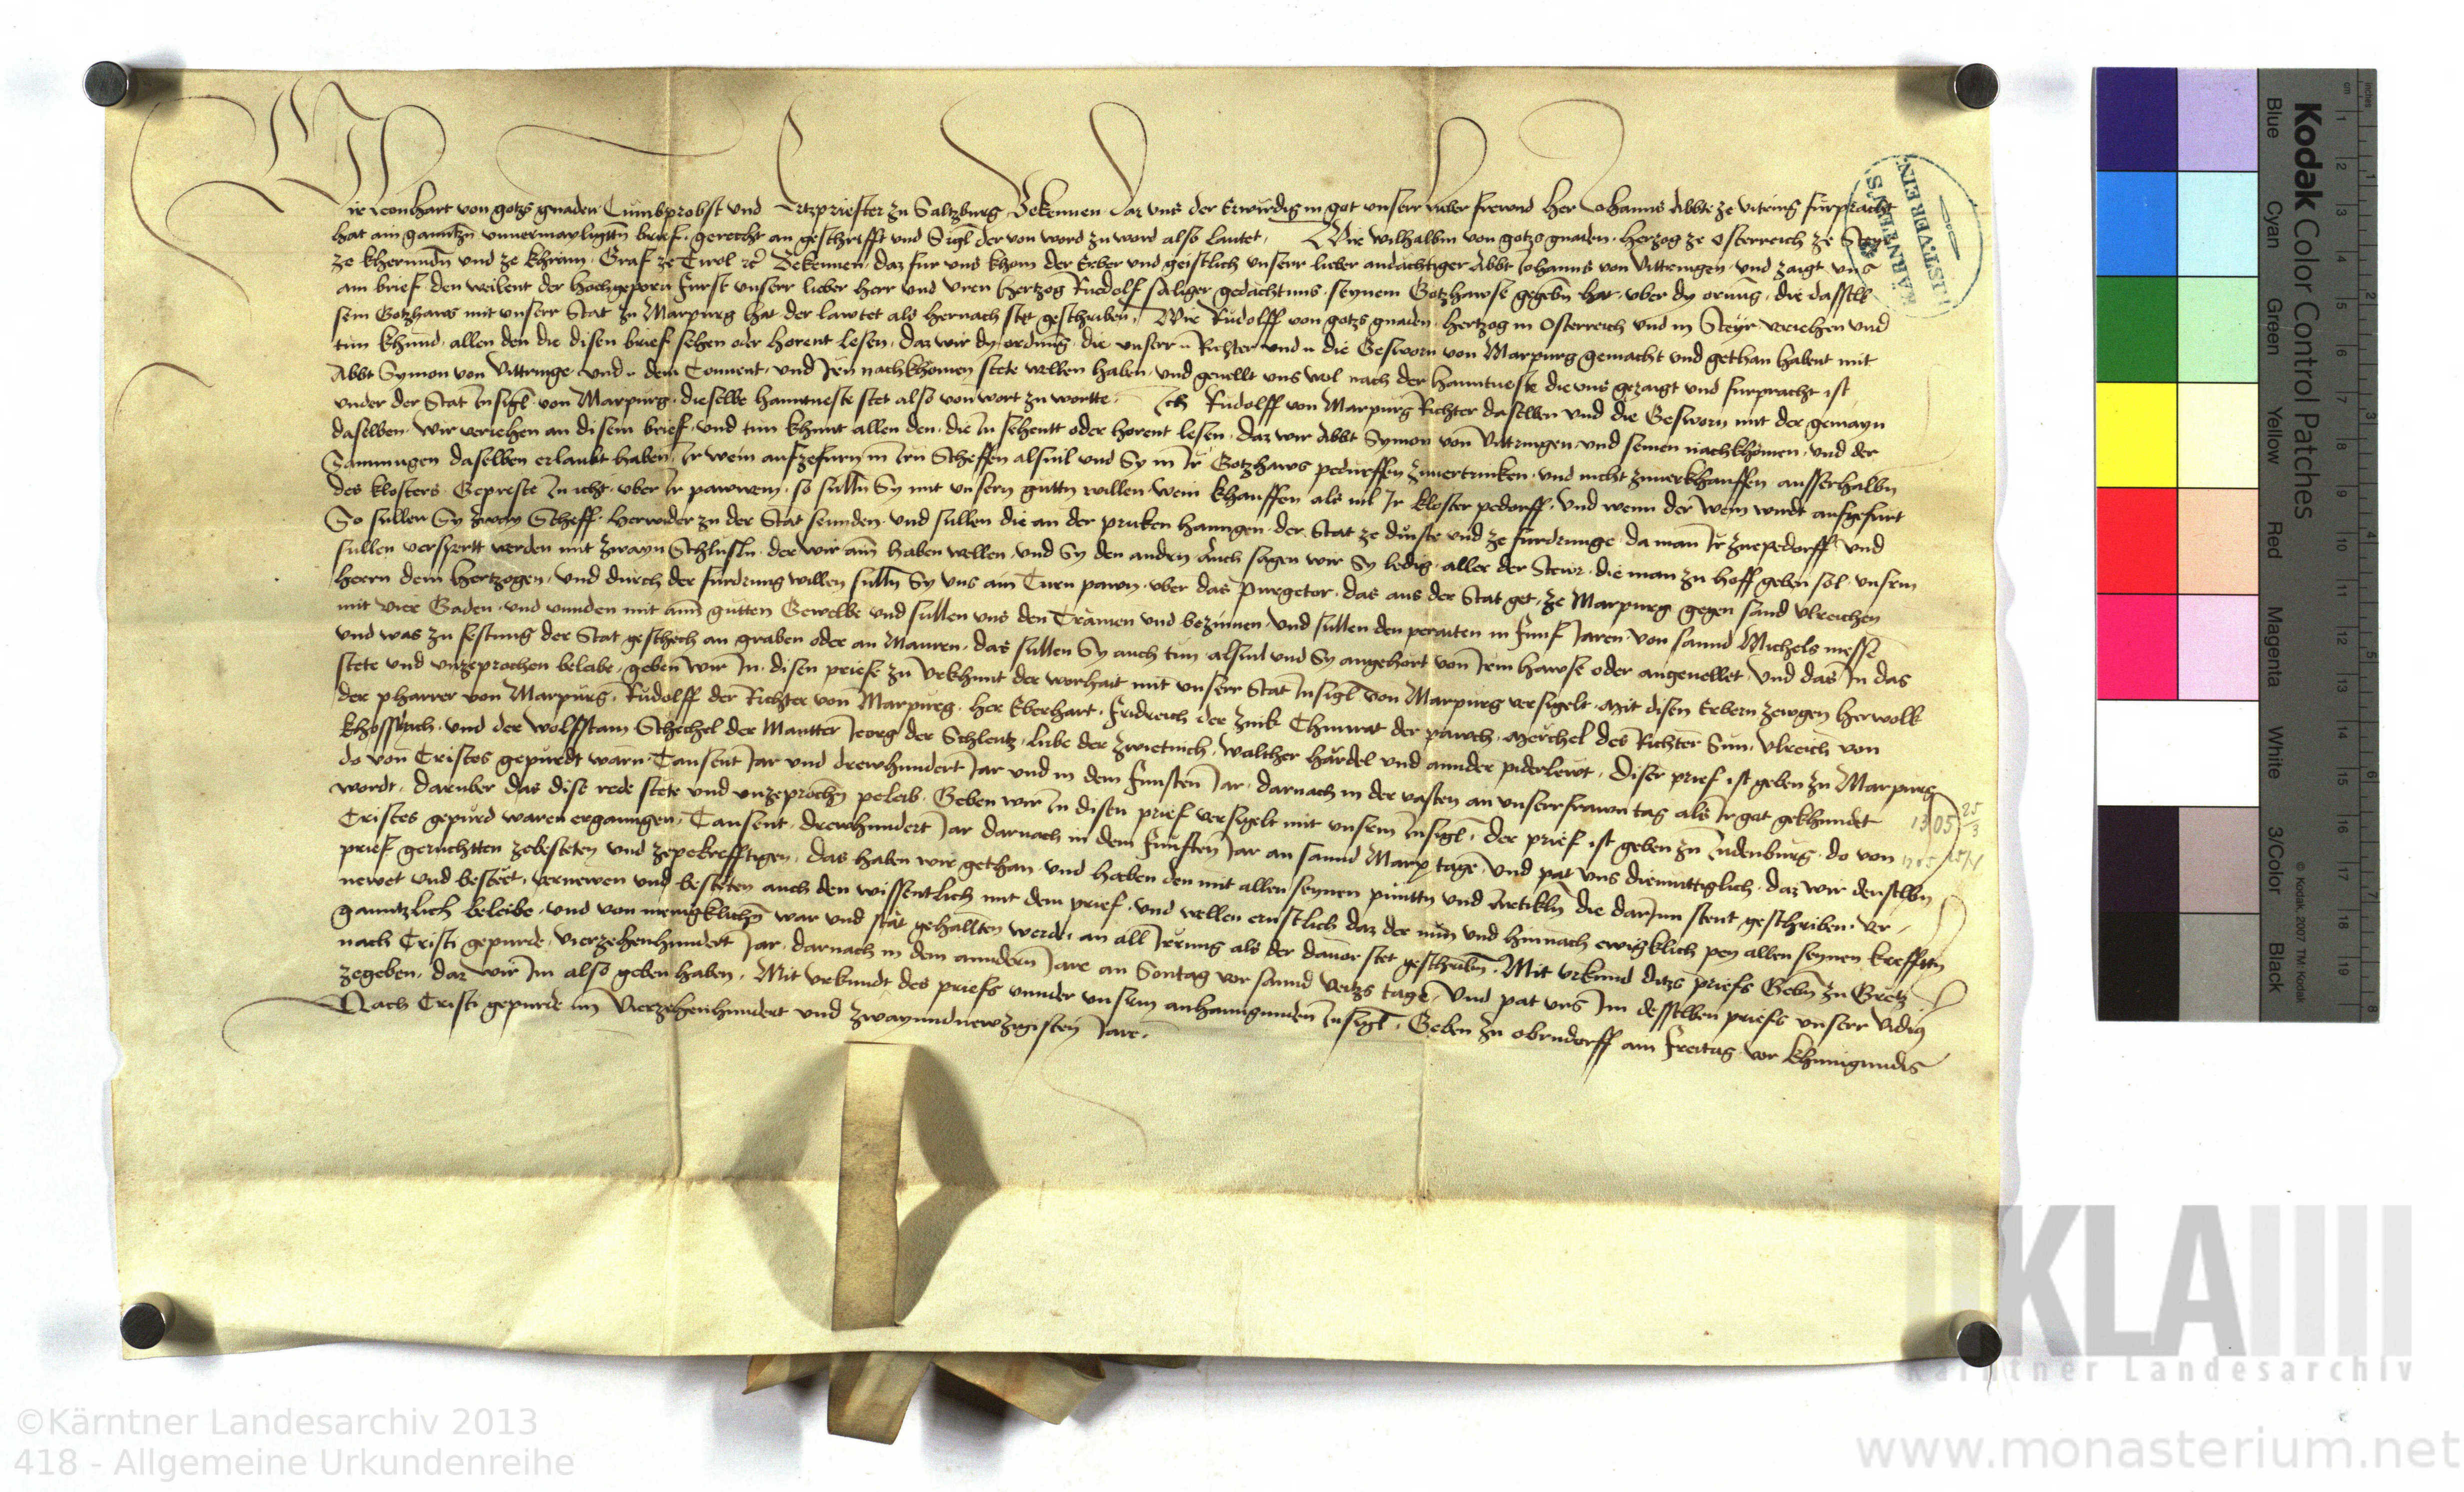 Wir Leonhart von gotzs gnaden Tumbprobst und Ertzpriester zu Saltzburg Bekennen daz uns der Erwirdig in got unserr lieber frewnd Her Johanns Abbte ze Vitring furpracht
hat ain ganntzn unuermayligttn brief gerecht an geschrifft und Sigl der von word zu word also lautet, Wir wilhalbm von gotzs gnaden herzog ze Osterreich ze Steyr
ze khernndn und ze khrain Graf ze Tirol etc Bekennen daz fur uns khom der Erber und geistlich unserr lieber andachtiger Abbt Johanns von Vittringen und zaigt uns
ain brief den weilent der hochgeporn furst unserr lieber herr und vren hertzog Ruedolf saliger gedachtnus seynem Gotzhawse gegebn hat uber dy ornung die dasselb
sein Gotzhaws mit unserr Stat zu Marpurg hat der lawtet als hernach stet geschriben, Wir Rudolff von gotzs gnaden hertzog in Osterreich und in Steyr veriehen und
tun khund allen den die disen brief sehen oder horent lesen daz wir dy ordnung die unserr Richter und die Gesworn von Marpurg gemacht und gethan habent mit
Abbt Symon von Vittringe und dem Conuent und Iren nachkhomen stete wellen haben und geuellt uns wol nach der hanntueste die uns gezaigt und furpracht ist
under der Stat Insigl von Marpurg dieselbe hanntueste stet also von wort zu wortte Ich Rudolff von Marpurg Richter daselben und die Gesworn mit der gemayn
daselben wir veriehen an disem brief und tun khunt allen den die In sehentt oder horent lesen daz wir Abbt Symon von Vittringen und seinen nachkhomen und der
Samnungen daselben erlaubt haben Ir wein aufzefurn in Irn Scheffen alsuil und Sy in Ir Gotzhaws pedurffen zuuertrinken und nicht zuuerkhauffen ausserhalbn
des klosters Gepreste In icht uber Ir pawwein so sulln Sy mit unsern guttn willen wein khauffen als uil Ir kloster pedorff und wenn der wein wirdt aufgefurt
So sullen Sy zway Scheff herwider zu der Stat sennden und sullen die an der pruken hanngen der Stat ze dinste und ze furdrunge da man Ir zuepedorff und
sullen versperrt werden mit zwayn Schlusln der wir ain haben wellen und Sy den andern Auch sagen wir Sy ledig aller der Stewr die man zu hoff geben sol unsrm
herrn dem hertzogen und durch der furdrung willen sulln Sy uns ain Turn pawn uber das purgetor das aus der Stat get ze Marpurg gegen sand Vlreichen
mit vier Gaden und unnden mit aim gutten Gewelbe und sullen uns den Tramen und bezinnen und sullen den peraiten in funf Jaren von sannd Michels messe
und was zu festung der Stat geschech an graben oder an Mauren das sullen Sy auch tun alsuil und Sy angehort von Irm hawse oder angeuellet und das In das
stete und unzeprochen beleibe geben wir In disen priefe zu Vrkhunt der warhait mit unserr Stat Insigl von Marpurg versigelt Mit disen Erbern zewgen her wolk
der pharrer von Marpurg Rudolff der Richter von Marpurg her Eberhart Fridreich der zink Chunrat der pawch Merchel des Richter Sun Vlreich von
Khossiach und der wolfstam Schechel der Mautter Jeorg der Schlentz Lube der Zwetnich walther hardel und annder piderlewt Diser prief ist geben zu Marpurg
do von Cristes gepurdt warn Tausent Jar und drewhundert Jar und in dem funften Jar darnach in der vasten an unserr frawn tag als Ir got gekhundet
wordt daruber das dise rede stete und unzeprochn peleib Geben wir In disen prief versigelt mit unserm Insigl, der prief ist geben zu Iudenburg do von
Cristes gepurd waren ergangen Tausent drewhundert Jar darnach in dem funften Jar an sannd Marx tage Und pat uns diemuttiglich daz wir denselbn
prief geruchtten zebesteten und zepekrefftigen das haben wir gethan und haben den mit allen seynen punttn und Artikln die darInn stent geschriben ver-
newet und bestetet vernewen und besteten auch den wissentlich mit dem prief und wellen ernstlich daz der nun und hinnach ewigklich pey allen seynen krefften
ganntzlich beleibe und von menigklichen war und stat gehallten werde an all Irrung als der dauor stet geschribn Mit urkund ditzs priefs Gebn zu Gretz
nach Cristi gepurde vierzehenhundert Jar darnach in dem anndern Jare an Sontag vor sannd Veitzs tage Und pat uns Im desselben priefs unserr vidim
zegeben daz wir Im also geben haben Mit vrkundt des priefs unnder unserm anhanngunden Insigl Geben zu obrndorff am freitag vor khunigundis
Nach Cristi gepurde im Vierzehenhundert und zwayundnewzigisten Jare
1305 25/3
1305 25/4
HIST. VEREIN
KÄRNTEN'S
Kodak Color Control Patches
Blue Cyan Green Yellow Red Magenta White 3/Color Black
© Kodak 2007 TM: Kodak
inches 1 2 3 4 5 6 7 8
cm 1 2 3 4 5 6 7 8 9 10 11 12 13 14 15 16 17 18 19
KLA
Kärntner Landesarchiv
©Kärntner Landesarchiv 2013
418 - Allgemeine Urkundenreihe
www.monasterium.net